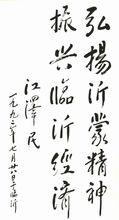 弘揚沂蒙精神
振兴臨沂經濟
江泽民
一九九二年七月廿八日于临沂